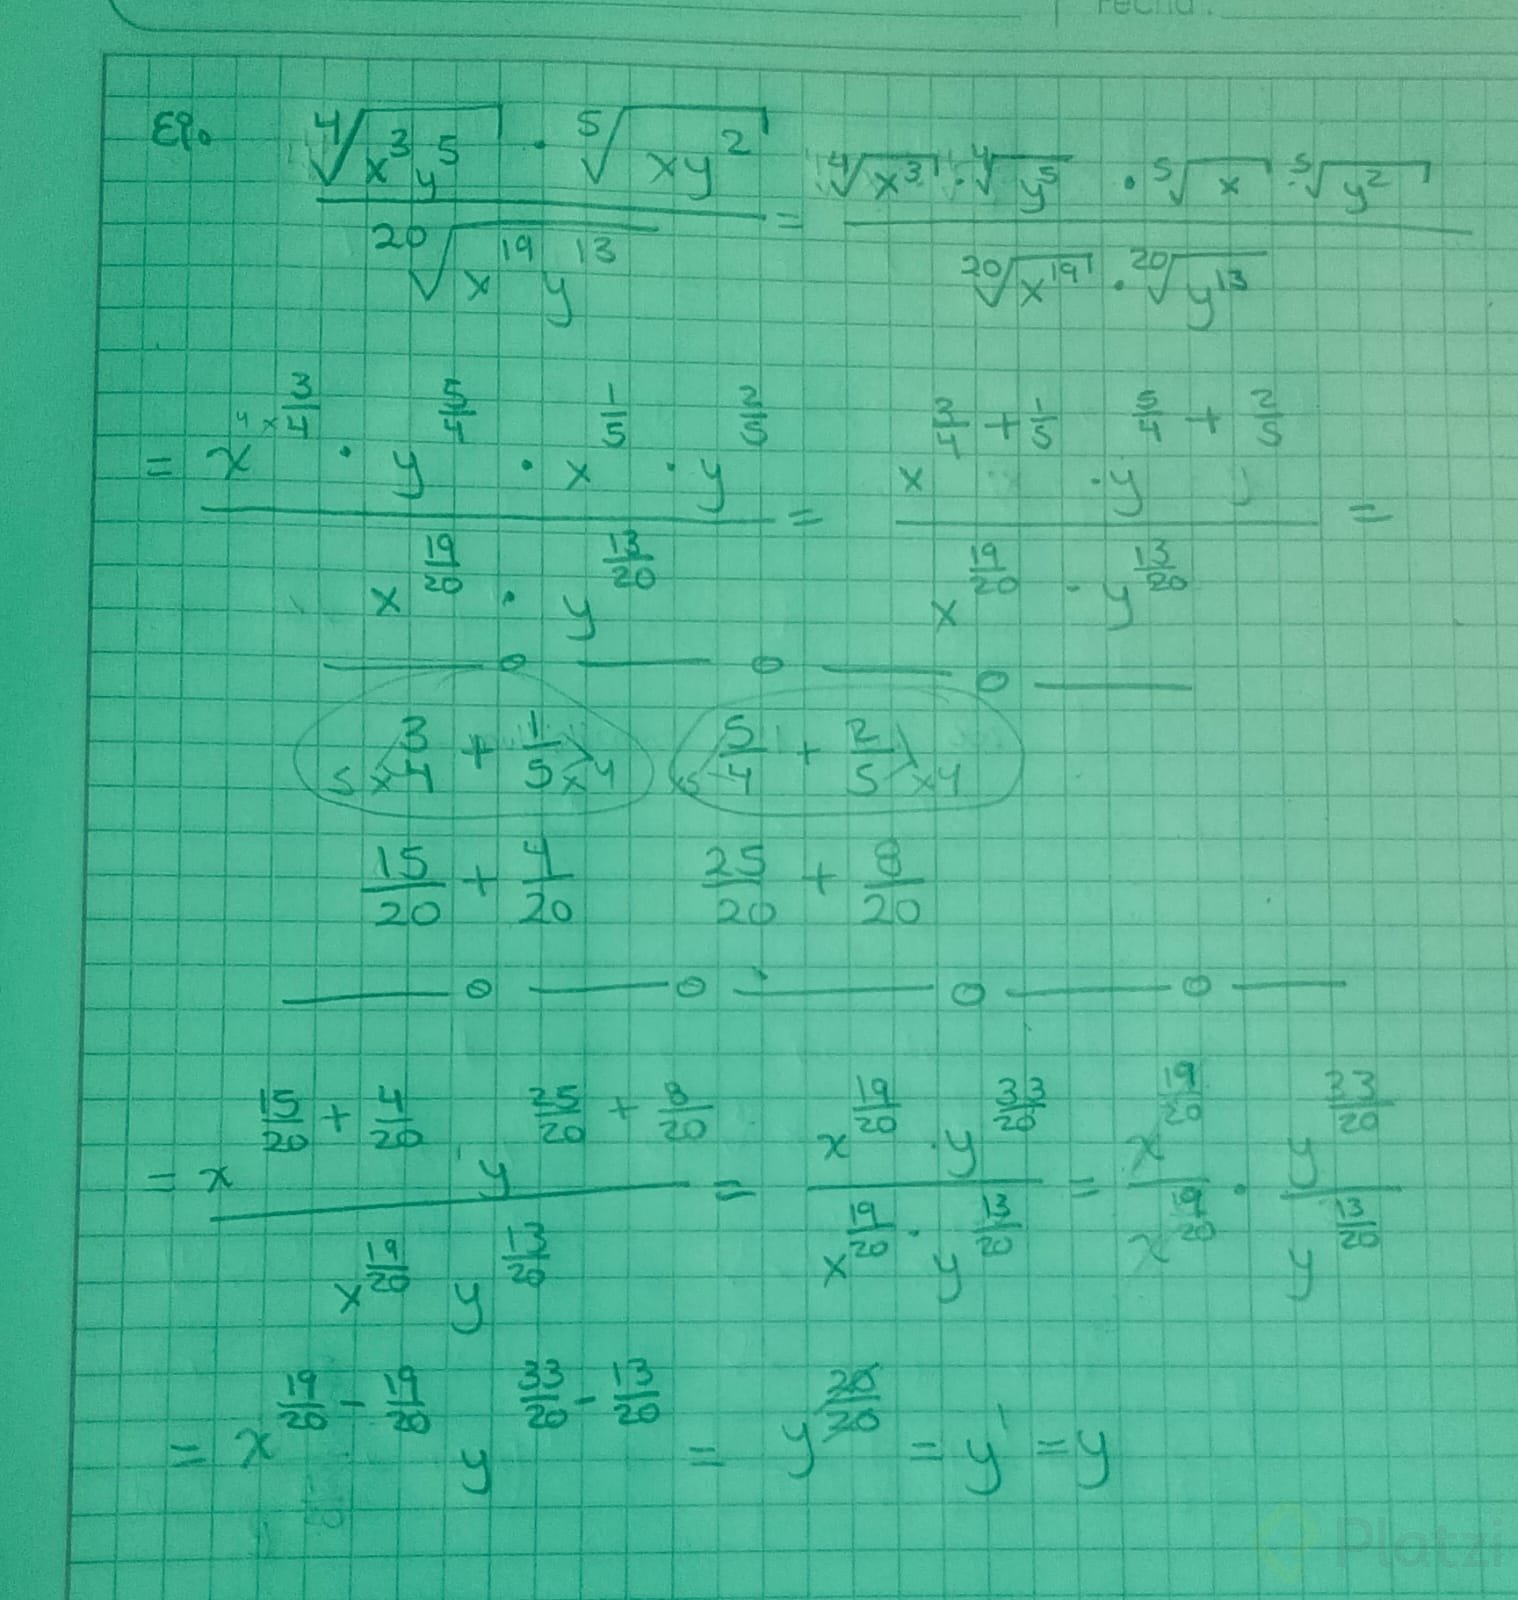 Fecha:
Ej. \frac{\sqrt[4]{x^3 y^5} \cdot \sqrt[5]{xy^2}}{\sqrt[20]{x^{19} y^{13}}} = \frac{\sqrt[4]{x^3} \cdot \sqrt[4]{y^5} \cdot \sqrt[5]{x} \cdot \sqrt[5]{y^2}}{\sqrt[20]{x^{19}} \cdot \sqrt[20]{y^{13}}}
= \frac{x^{\frac{3}{4}} \cdot y^{\frac{5}{4}} \cdot x^{\frac{1}{5}} \cdot y^{\frac{2}{5}}}{x^{\frac{19}{20}} \cdot y^{\frac{13}{20}}} = \frac{x^{\frac{3}{4} + \frac{1}{5}} \cdot y^{\frac{5}{4} + \frac{2}{5}}}{x^{\frac{19}{20}} \cdot y^{\frac{13}{20}}} =
5 x \frac{3}{4} + \frac{1}{5} x 4 5 \frac{5}{4} + \frac{2}{5} x 4
\frac{15}{20} + \frac{4}{20} \frac{25}{20} + \frac{8}{20}
= \frac{x^{\frac{15}{20} + \frac{4}{20}} y^{\frac{25}{20} + \frac{8}{20}}}{x^{\frac{19}{20}} y^{\frac{13}{20}}} = \frac{x^{\frac{19}{20}} \cdot y^{\frac{33}{20}}}{x^{\frac{19}{20}} \cdot y^{\frac{13}{20}}} = \frac{x^{\frac{19}{20}}}{x^{\frac{19}{20}}} \cdot \frac{y^{\frac{33}{20}}}{y^{\frac{13}{20}}}
= x^{\frac{19}{20} - \frac{19}{20}} y^{\frac{33}{20} - \frac{13}{20}} = y^{\frac{20}{20}} = y^1 = y
Platzi